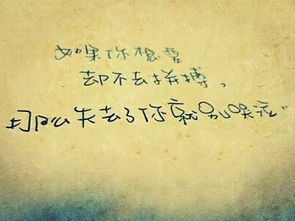 如果你想要
却不去拼搏。
那么失去了你就别哭泣